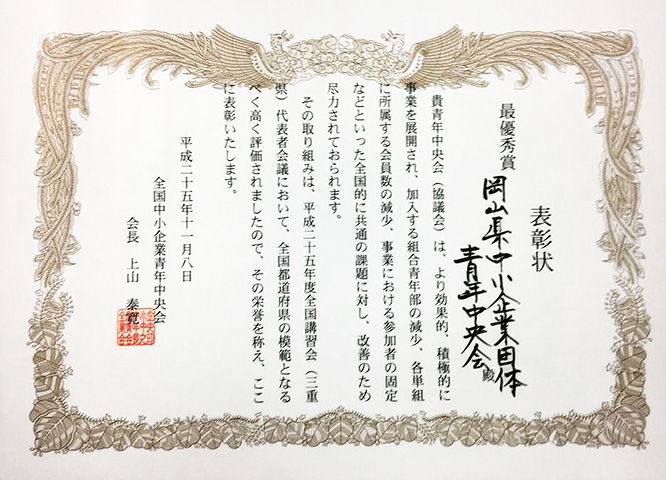 表彰状
最優秀賞
岡山県中小企業団体
青年中央会殿
貴青年中央会（協議会）は、より効果的、積極的に
事業を展開され、加入する組合青年部の減少、各単組
に所属する会員数の減少、事業における参加者の固定
などといった全国的に共通の課題に対し、改善のため
尽力されておられます。
その取り組みは、平成二十五年度全国講習会（三重
県）代表者会議において、全国都道府県の模範となる
べく高く評価されましたので、その栄誉を称え、ここ
に表彰いたします。
平成二十五年十一月八日
全国中小企業青年中央会
会長　上山　泰寛